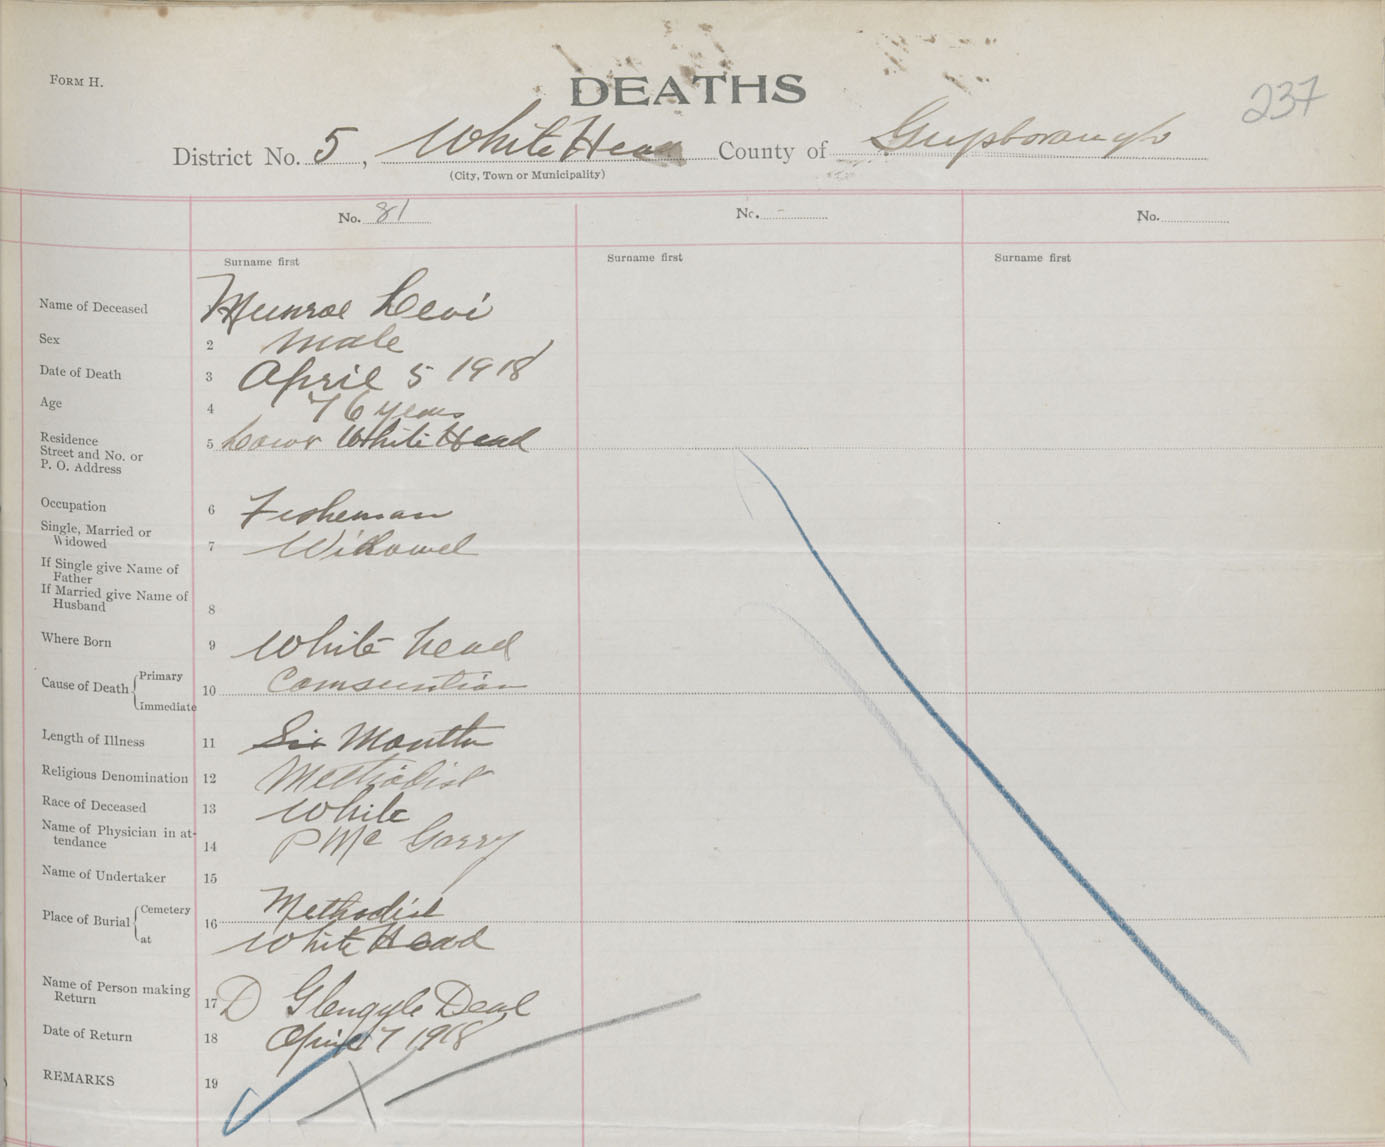 FORM H.
DEATHS
237
District No. 5, White Head County of Guysborough
(City, Town or Municipality)
No. 81
No.
No.
Surname first
Surname first
Surname first
Name of Deceased 1 Munroe Levi
Sex 2 male
Date of Death 3 April 5 1918
Age 4 76 years
Residence
Street and No. or
P. O. Address
5 White Head
Occupation 6 Fisheman
Single, Married or
Widowed
7 Widowed
If Single give Name of
Father
If Married give Name of
Husband
8
Where Born 9 White head
Cause of Death Primary
Immediate
10 Comsumtion
Length of Illness 11 Six Months
Religious Denomination 12 Methodist
Race of Deceased 13 White
Name of Physician in at-
tendance
14 P Mc Garry
Name of Undertaker 15
Place of Burial Cemetery
at
16 Methodist
White Head
Name of Person making
Return
17 D Glengyle Deal
Date of Return 18 April 7 1918
REMARKS 19